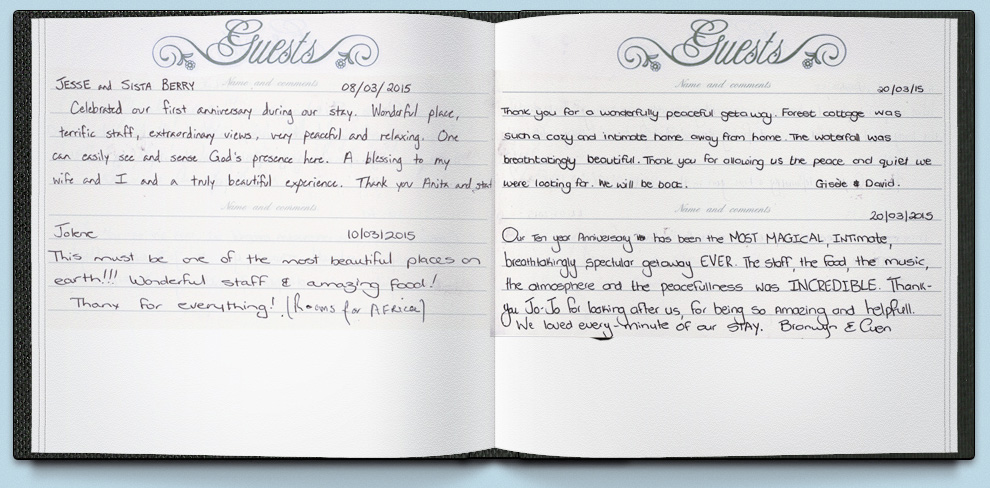 Guests
Name and comments
JESSE and SISTA BERRY 08/03/2015
Celebrated our first anniversary during our stay. Wonderful place,
terrific staff, extraordinary views, very peaceful and relaxing. One
can easily see and sense God's presence here. A blessing to my
wife and I and a truly beautiful experience. Thank you Anita and staff
Name and comments
Jolene 10/03/2015
This must be one of the most beautiful places on
earth!!! Wonderful staff & amazing food!
Thanx for everything! (Rooms for AFRICA)
Guests
Name and comments
20/03/15
Thank you for a wonderfully peaceful getaway. Forest cottage was
such a cozy and intimate home away from home. The waterfall was
breathtakingly beautiful. Thank you for allowing us the peace and quiet we
were looking for. We will be back. & David.
Name and comments
20/03/2015
Our Ten year Anniversary has been the MOST MAGICAL, INTimate,
breathtakingly spectular getaway EVER. The staff, the food, the music,
the atmosphere and the peacefullness was INCREDIBLE. Thank-
you Jo-Jo for looking after us, for being so amazing and helpfull.
We loved every-minute of our STAY. Bronwyn &